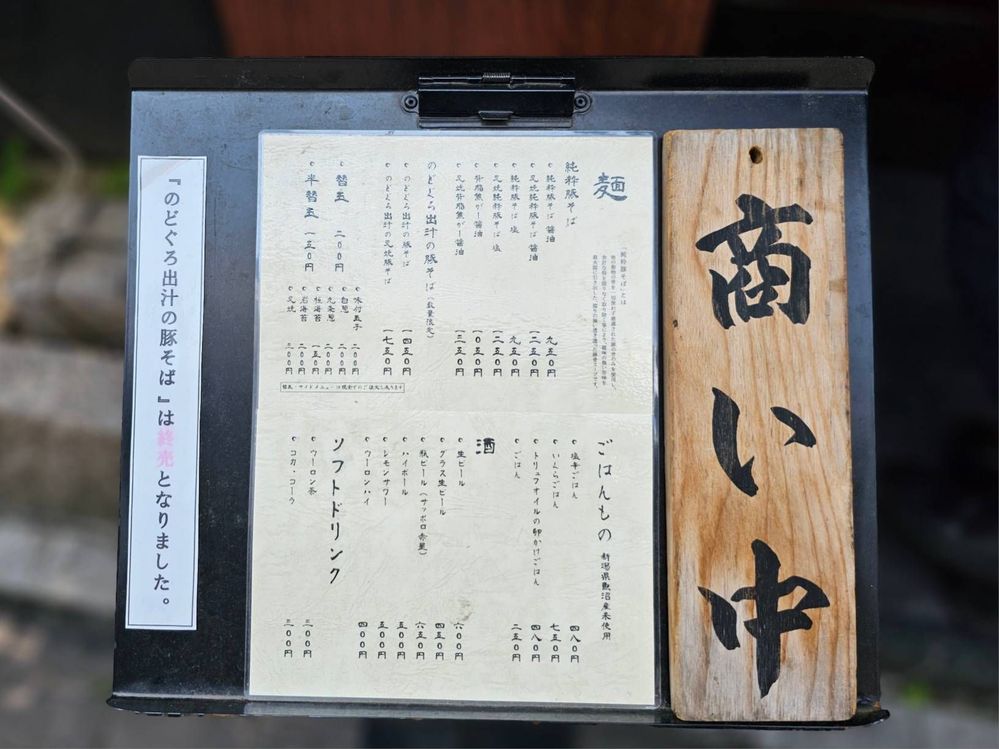 商い中
麺
「純粋豚そば」とは
純粋豚そば
純粋豚そば 醤油 九五〇円
叉焼純粋豚そば 醤油 一二五〇円
純粋豚そば 塩 九五〇円
叉焼純粋豚そば 塩 一二五〇円
背脂焦がし醤油 一〇五〇円
叉焼背脂焦がし醤油 一三五〇円
のどぐろ出汁の豚そば(数量限定)
のどぐろ出汁の豚そば 一四五〇円
のどぐろ出汁の叉焼豚そば 一七五〇円
替玉 二〇〇円
半替玉 一五〇円
味付玉子 二〇〇円
白葱 二〇〇円
九条葱 二〇〇円
板海苔 一五〇円
岩海苔 二〇〇円
叉焼 三〇〇円
替玉・サイドメニューは現金でのご注文も承ります
ごはんもの 新潟県魚沼産米使用
塩辛ごはん 四八〇円
いくらごはん 七五〇円
トリュフオイルの卵かけごはん 四八〇円
ごはん 二五〇円
酒
生ビール 六〇〇円
グラス生ビール 四五〇円
瓶ビール(サッポロ赤星) 六五〇円
ハイボール 五〇〇円
レモンサワー 五〇〇円
ウーロンハイ 四〇〇円
ソフトドリンク
ウーロン茶 三〇〇円
コカ・コーラ 三〇〇円
『のどぐろ出汁の豚そば』は終売となりました。